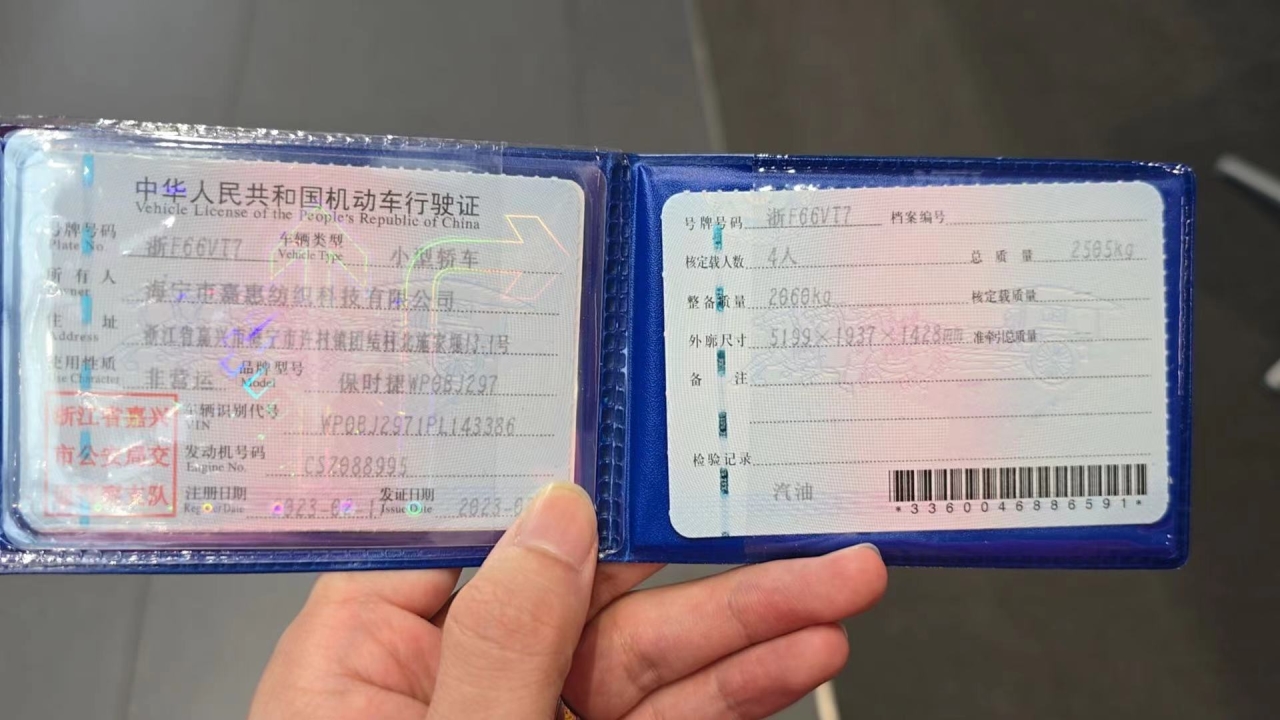 中华人民共和国机动车行驶证
Vehicle License of the People's Republic of China
号牌号码 浙F66VT7 车辆类型 小型轿车
Plate No. Vehicle Type
所有人 海宁市嘉惠纺织科技有限公司
Owner
住址 浙江省嘉兴市海宁市许村镇团结村北施家堰12-1号
Address
使用性质 非营运 品牌型号 保时捷WP0BJ297
Use Character Model
车辆识别代号 WP0BJ2971PL143386
VIN
发动机号码 CSZ088995
Engine No.
注册日期 发证日期
Register Date Issue Date 2023-0
浙江省嘉兴
市公安局交
支队
号牌号码 浙F66VT7 档案编号
核定载人数 4人 总质量 2585kg
整备质量 2060kg 核定载质量
外廓尺寸 5199×1937×1428mm 准牵引总质量
备注
检验记录
汽油
*3360046886591*